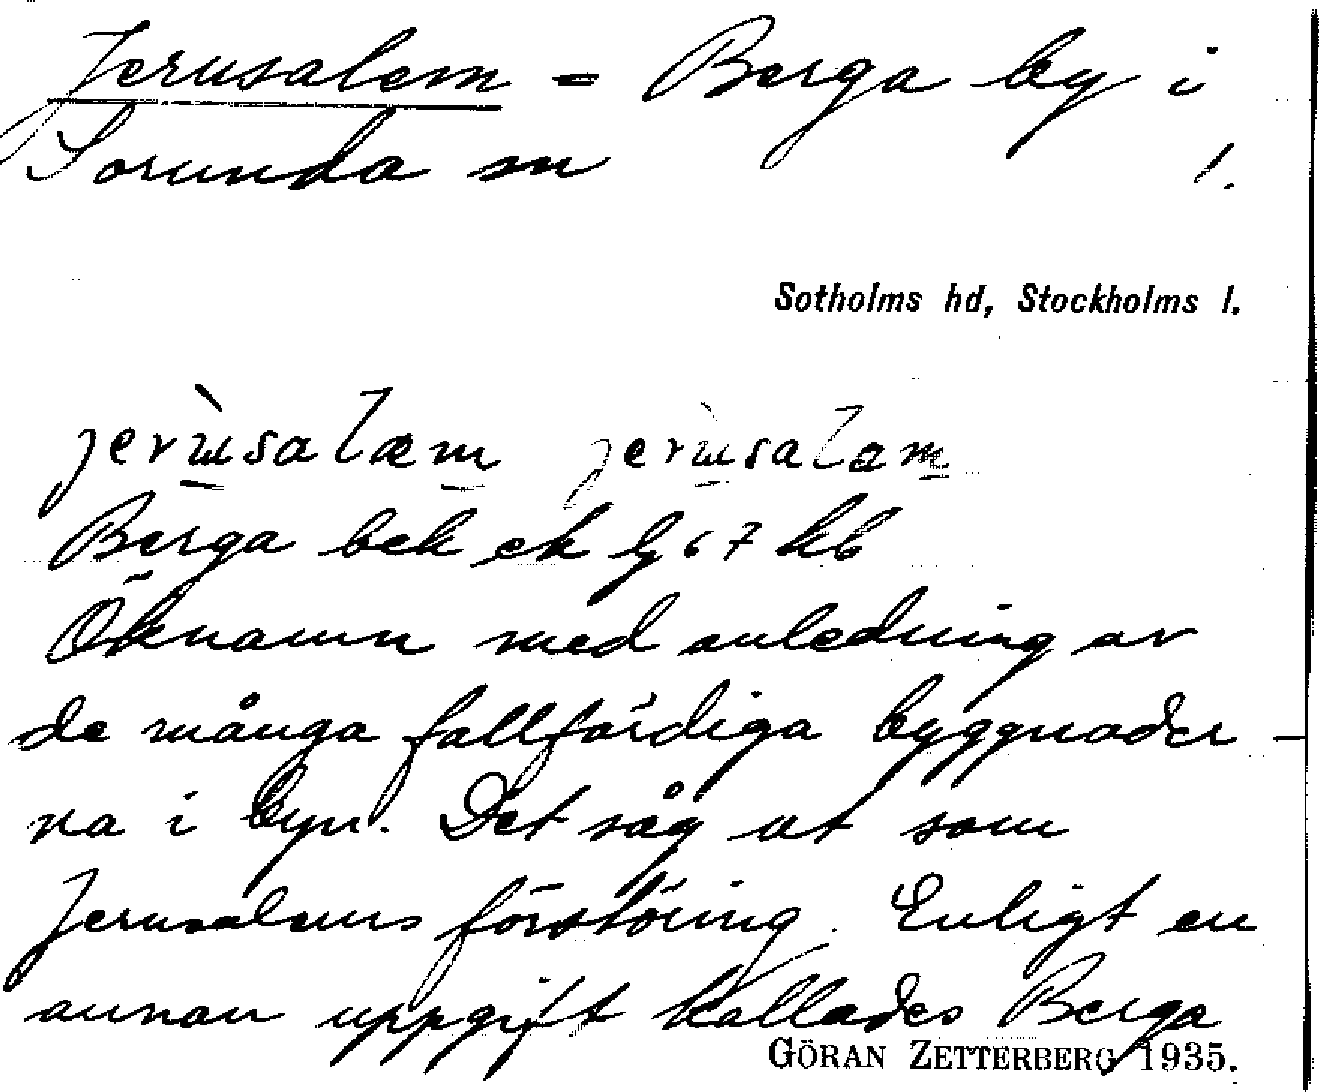 Jerusalem = Berga by i
Sorunda sn 1.
Sotholms hd, Stockholms l.
jerùsalæm jerùsalam
Berga bek ek bl 67 hb
Öknamn med anledning av
de många fallfärdiga byggnader-
na i byn. Det såg ut som
Jerusalems förstöring. Enligt en
annan uppgift kallades Berga
GÖRAN ZETTERBERG 1935.